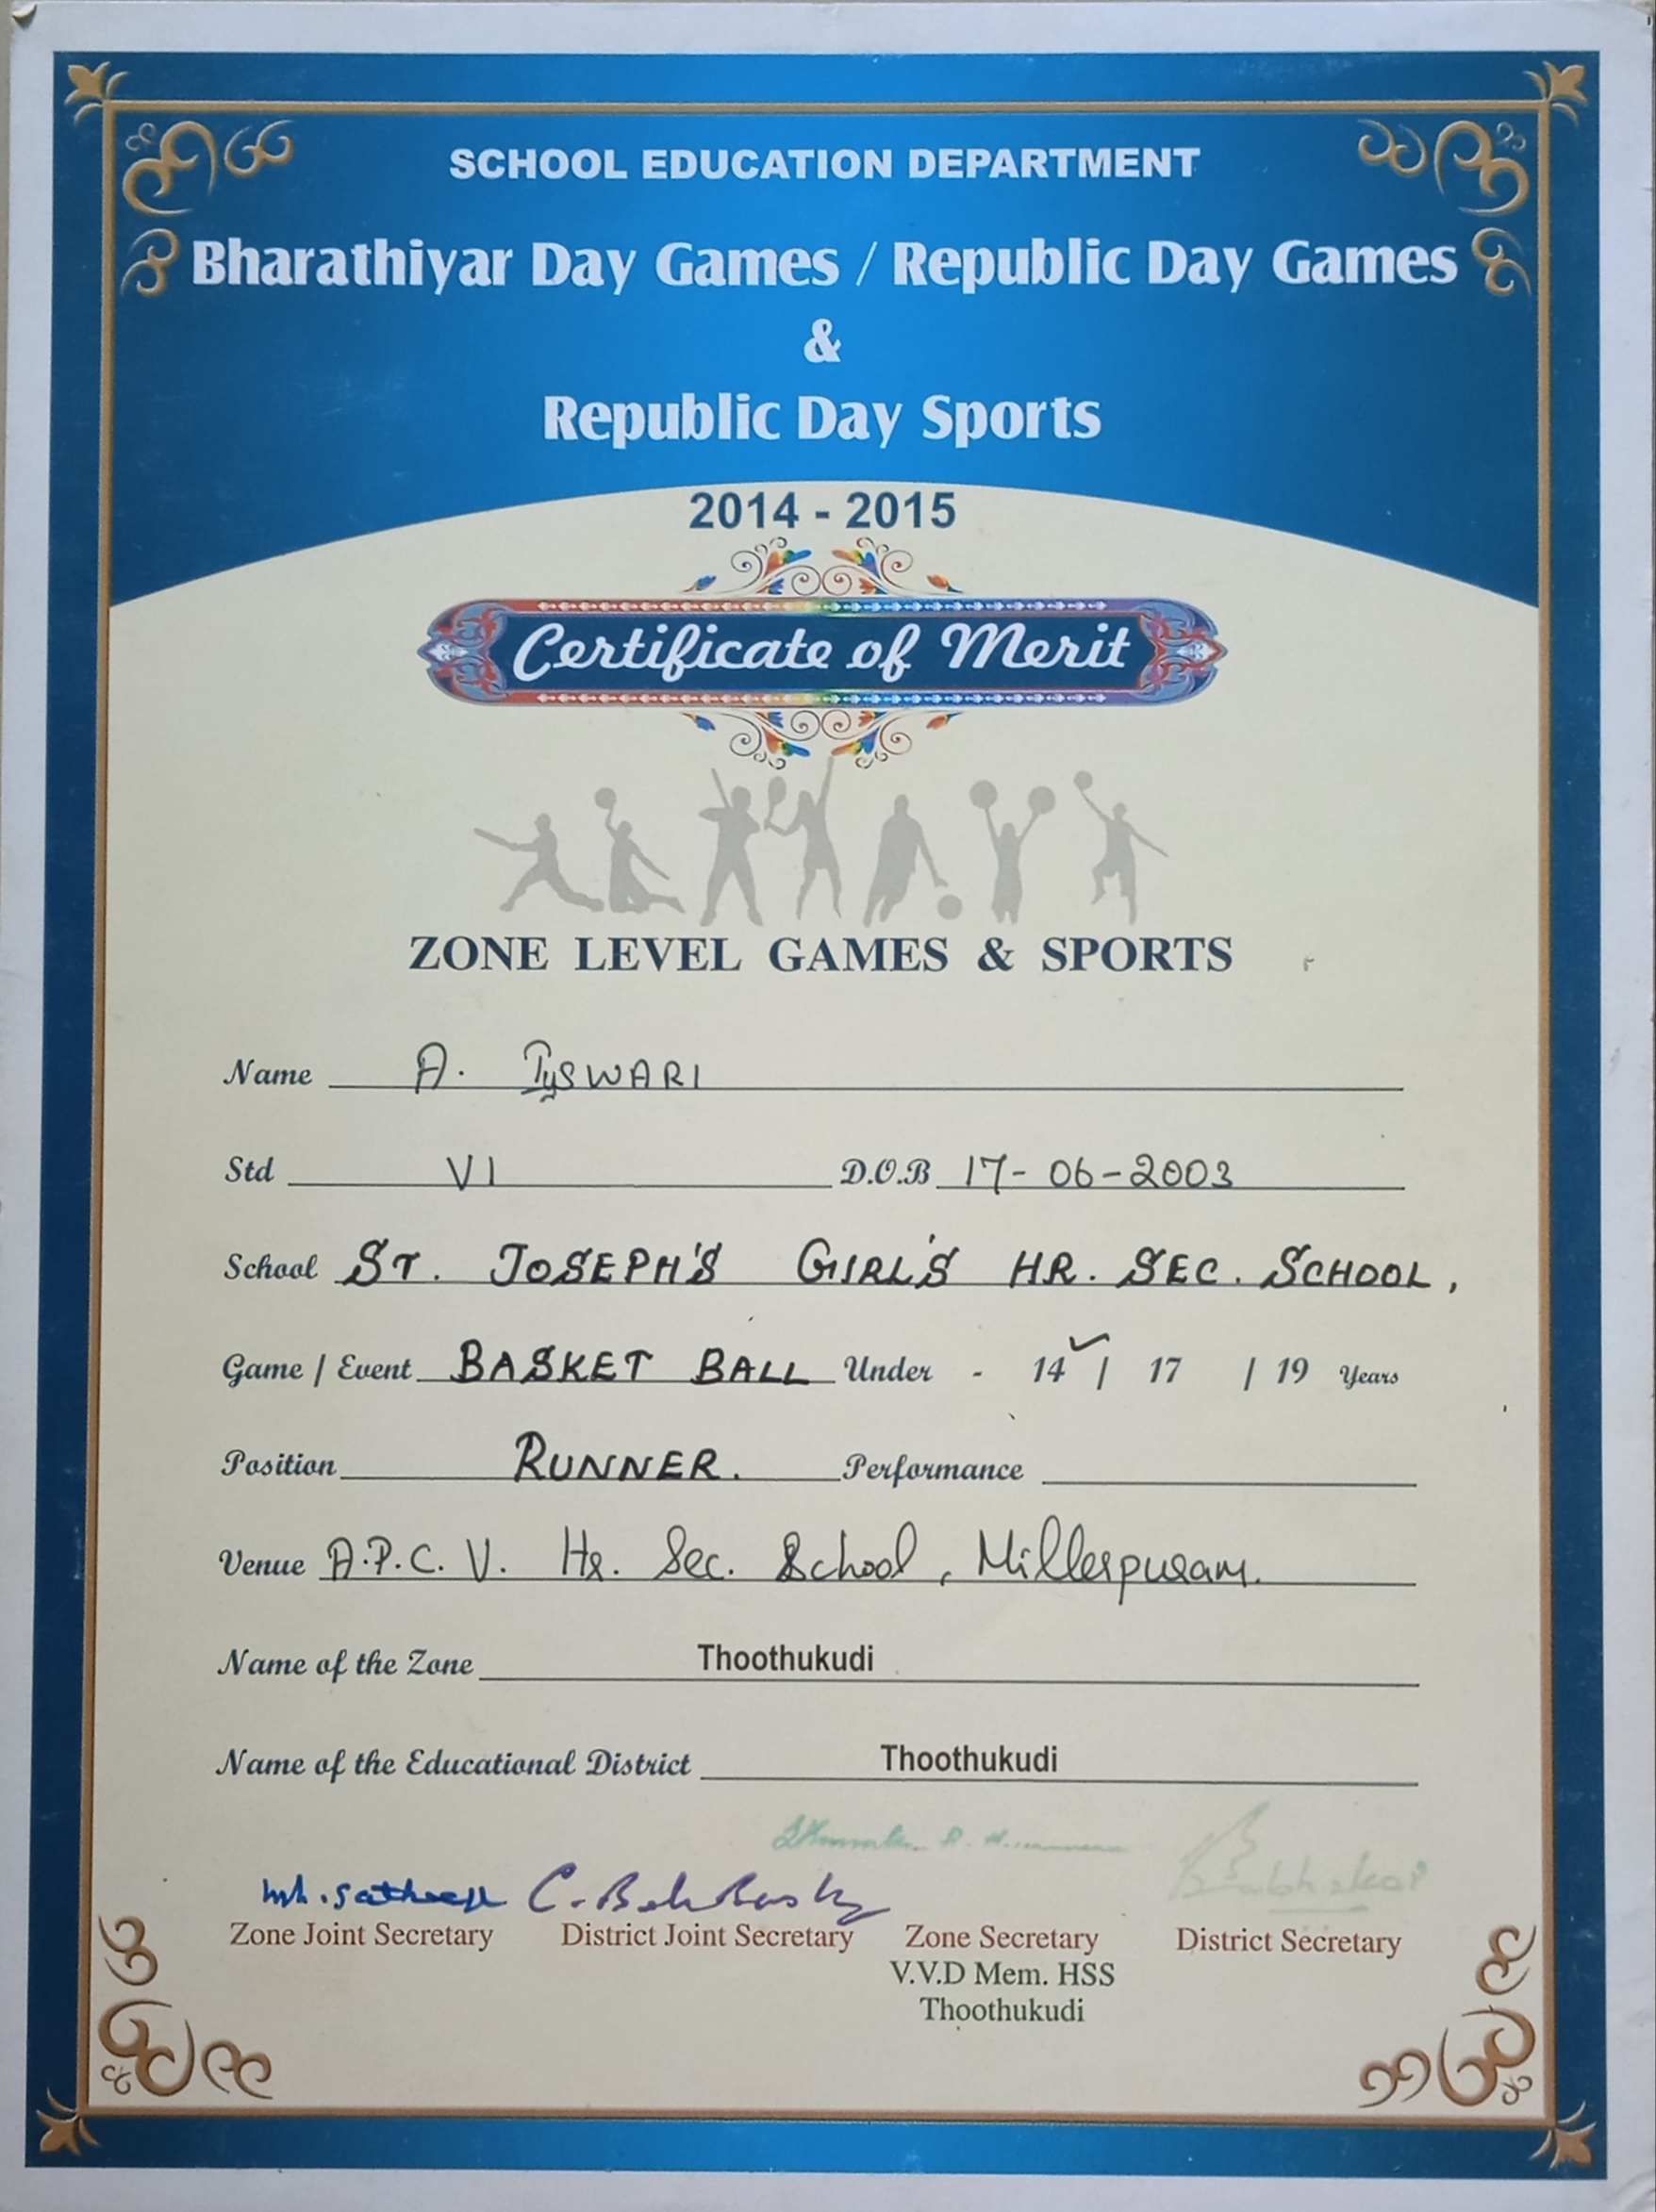 SCHOOL EDUCATION DEPARTMENT
Bharathiyar Day Games / Republic Day Games
&
Republic Day Sports
2014 - 2015
Certificate of Merit
ZONE LEVEL GAMES & SPORTS
Name A. IySWARI
Std VI D.O.B 17-06-2003
School ST. JOSEPH'S GIRL'S HR. SEC. SCHOOL,
Game / Event BASKET BALL Under - 14 ✓ / 17 / 19 Years
Position RUNNER. Performance
Venue A.P.C.V. Hr. Sec. School, Millerpuram.
Name of the Zone Thoothukudi
Name of the Educational District Thoothukudi
Zone Joint Secretary District Joint Secretary Zone Secretary District Secretary
V.V.D Mem. HSS
Thoothukudi